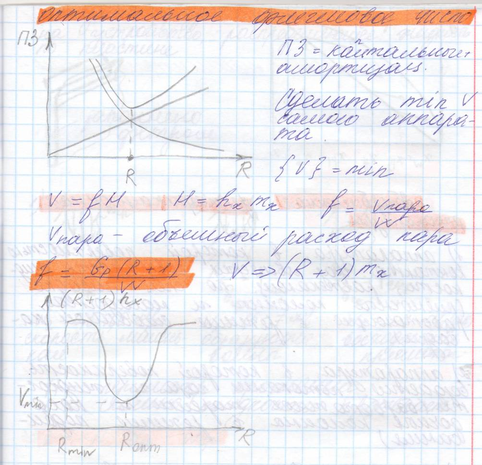 оптимальное флегмовое число
ПЗ
ПЗ = капитальные
амортизац.
Сделать min V
самого аппара-
та.
{V} = min
R
R
V = fH H = hₓmₓ f = Vпара/W
Vпара - объемный расход пара
f = Gp(R+1)/W V => (R+1)mₓ
(R+1)hₓ
Vmin
Rmin Rопт R